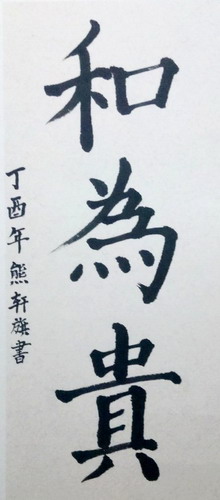 和為貴
丁酉年熊轩旗書